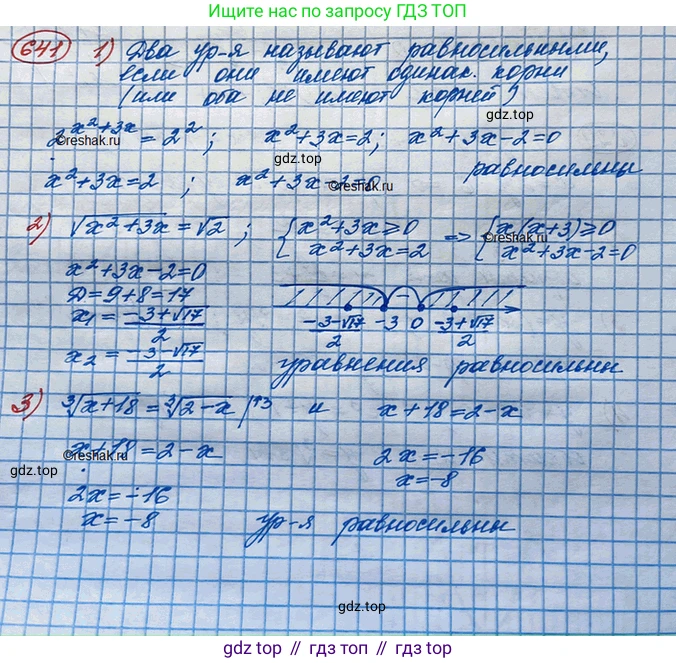 Ищите нас по запросу ГДЗ ТОП
641 1) Два ур-я называют равносильными,
если они имеют одинак. корни
(или оба не имеют корней)
gdz.top
2^(x²+3x) = 2²; x²+3x=2; x²+3x-2=0
©reshak.ru
gdz.top
равносильны
x²+3x=2; x²+3x-2=0
©reshak.ru
2) √x²+3x = √2; { x²+3x≥0 => { x(x+3)≥0
x²+3x=2 x²+3x-2=0
©reshak.ru
x²+3x-2=0
D=9+8=17
x₁=(-3+√17)/2
x₂=(-3-√17)/2
(-3-√17)/2 -3 0 (-3+√17)/2
уравнения равносильны
3) ³√x+18 = ³√2-x |↑3 и x+18=2-x
x+18=2-x
©reshak.ru
gdz.top
2x=-16
x=-8
2x=-16
gdz.top
x=-8 ур-я равносильны
gdz.top
gdz.top // гдз.топ // gdz.top // гдз.топ